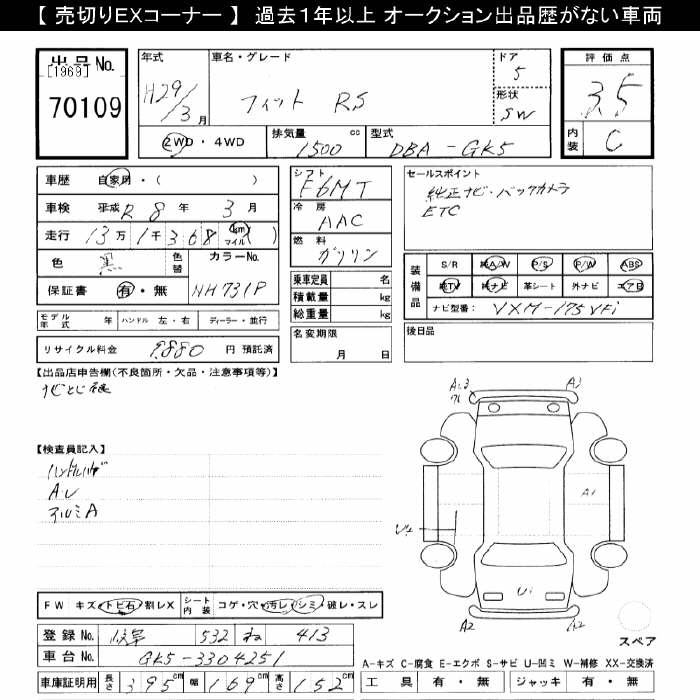 【 売切りEXコーナー 】 過去１年以上 オークション出品歴がない車両
出品 No.
【1969】
70109
年式 H29/3月
車名・グレード フィット RS
ドア 5
形状 SW
2WD・4WD
排気量 1500 cc
型式 DBA-GK5
評価点 3.5
内装 C
車歴 自家用・( )
車検 平成 R 8年 3月
走行 13万1千368 km マイル
色 黒 色替 カラーNo. NH731P
保証書 有・無
モデル年式 年 ハンドル 左・右 ディーラー・並行
リサイクル料金 9,880 円 預託済
シフト F6MT
冷房 AAC
燃料 ガソリン
乗車定員 名
積載量 kg
総重量 kg
名変期限 月 日
セールスポイント
純正ナビ・バックカメラ
ETC
装備品
S/R 純A/W P/S P/W ABS
純TV 純ナビ 革シート 外ナビ エアB
ナビ型番: VXM-175VFi
後日品
【出品店申告欄(不良箇所・欠品・注意事項等)】
【検査員記入】
アルミA
A1
A1
U2
Ui
A2
FW キズ・トビ石・割レX シート内装 コゲ・穴・汚レ・シミ・破レ・スレ
登録 No. 岐阜 532 ね 413
車台 No. GK5-3304251
車庫証明用 長さ 395cm 幅 169cm 高さ 152cm
スペア
A-キズ C-腐食 E-エクボ S-サビ U-凹ミ W-補修 XX-交換済
工具 有・無 ジャッキ 有・無